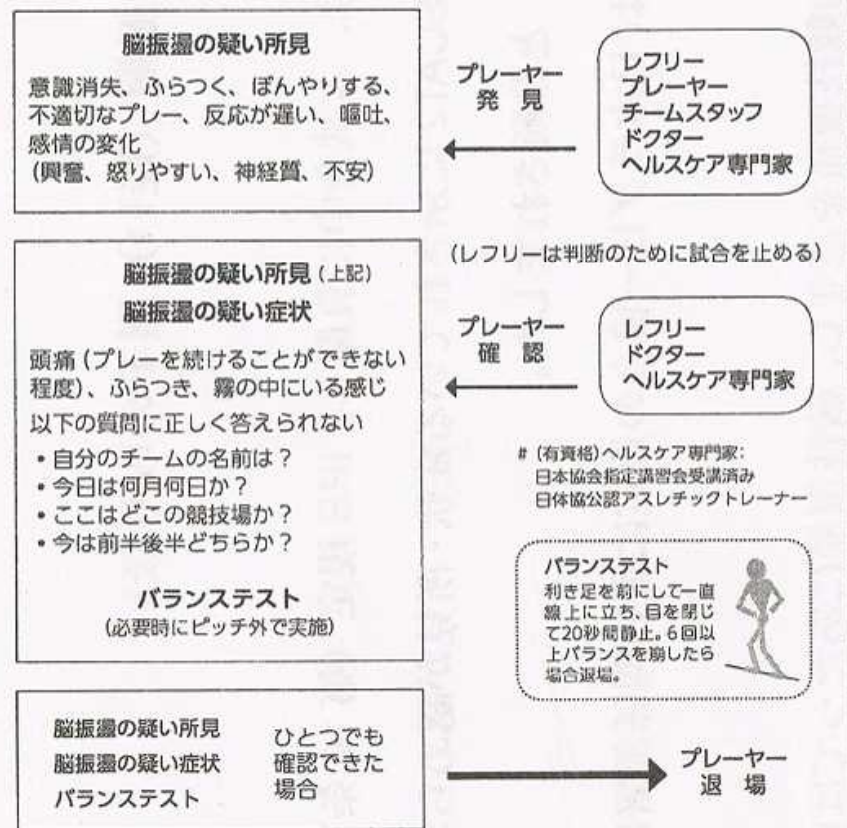 脳振盪の疑い所見
意識消失、ふらつく、ぼんやりする、
不適切なプレー、反応が遅い、嘔吐、
感情の変化
(興奮、怒りやすい、神経質、不安)
プレーヤー
発 見
レフリー
プレーヤー
チームスタッフ
ドクター
ヘルスケア専門家
(レフリーは判断のために試合を止める)
脳振盪の疑い所見(上記)
脳振盪の疑い症状
頭痛(プレーを続けることができない
程度)、ふらつき、霧の中にいる感じ
以下の質問に正しく答えられない
・自分のチームの名前は?
・今日は何月何日か?
・ここはどこの競技場か?
・今は前半後半どちらか?
バランステスト
(必要時にピッチ外で実施)
プレーヤー
確 認
レフリー
ドクター
ヘルスケア専門家
# (有資格)ヘルスケア専門家:
日本協会指定講習会受講済み
日体協公認アスレチックトレーナー
バランステスト
利き足を前にして一直
線上に立ち、目を閉じ
て20秒間静止。6回以
上バランスを崩したら
場合退場。
脳振盪の疑い所見
脳振盪の疑い症状
バランステスト
ひとつでも
確認できた
場合
プレーヤー
退 場